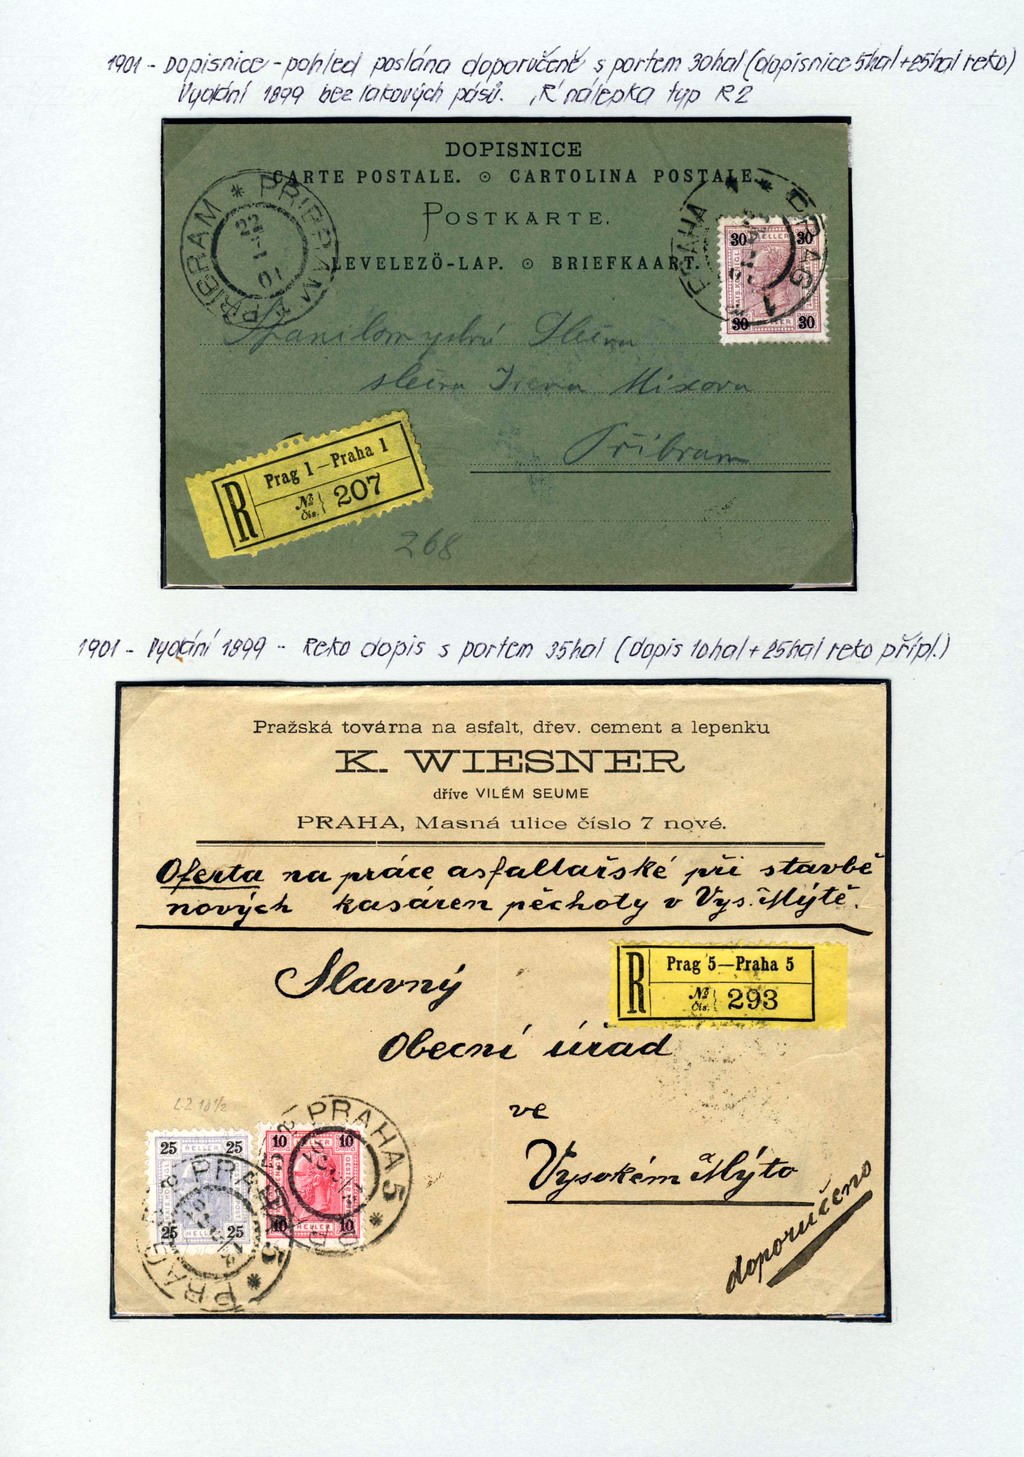 1901 - Dopisnice - pohled poslána doporučeně s portem 30hal (dopisnice 5hal + 25hal reko)
Vydání 1899 bez lakových pásů. „R“ nálepka typ R2
DOPISNICE
CARTE POSTALE. ⊙ CARTOLINA POSTALE.
POSTKARTE.
LEVELEZÖ-LAP. ⊙ BRIEFKAART.
PŘIBRAM * PŘIBRAM
22
01
PRAHA 1 * PRAG 1
30 HELLER 30
30 30
slečna Irena Mixova
Příbram
R
Prag 1—Praha 1
№ Čis. 207
268
1901 - Vydání 1899 - Reko dopis s portem 35hal (dopis 10hal + 25hal reko přípl.)
Pražská továrna na asfalt, dřev. cement a lepenku
K. WIESNER
dříve VILÉM SEUME
PRAHA, Masná ulice číslo 7 nové.
Oferta na práce asfaltařské při stavbě
nových kasáren pěchoty v Vys. Mýtě.
R
Prag 5—Praha 5
№ Čis. 293
Slavný
Obecní úřad
ve
Vysokém Mýto
doporučeno
LZ 10½
25 HELLER 25
25 25
10 10
10 HELLER 10
PRAHA 5 *
PRAG 5 PRAHA 5 *